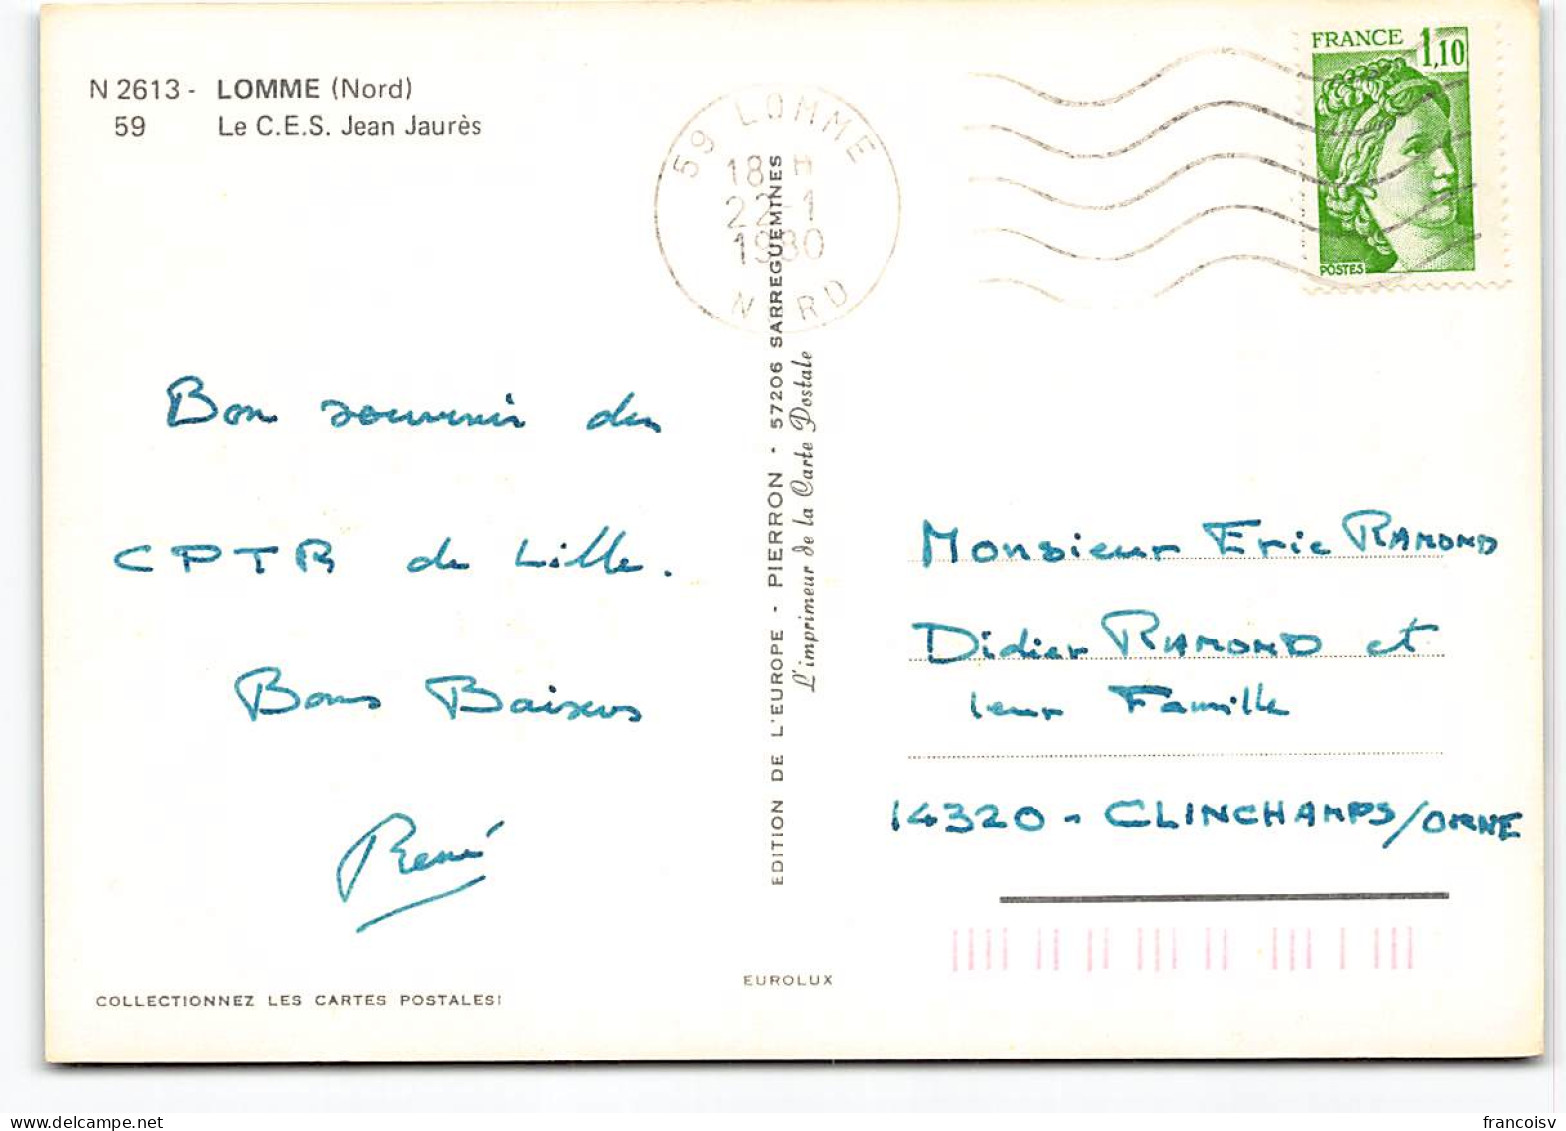 N 2613 - LOMME (Nord)
59 Le C.E.S. Jean Jaurès
59 LOMME
18 H
22-1
1980
NORD
FRANCE 1,10
POSTES
Bon souvenir du
CPTR de Lille.
Bons Baisers
René
EDITION DE L'EUROPE - PIERRON - 57206 SARREGUEMINES
L'imprimeur de la Carte Postale
Monsieur Eric RAMOND
Didier RAMOND et
leur Famille
14320 - CLINCHAMPS/ORNE
EUROLUX
COLLECTIONNEZ LES CARTES POSTALES!
www.delcampe.net
francoisv